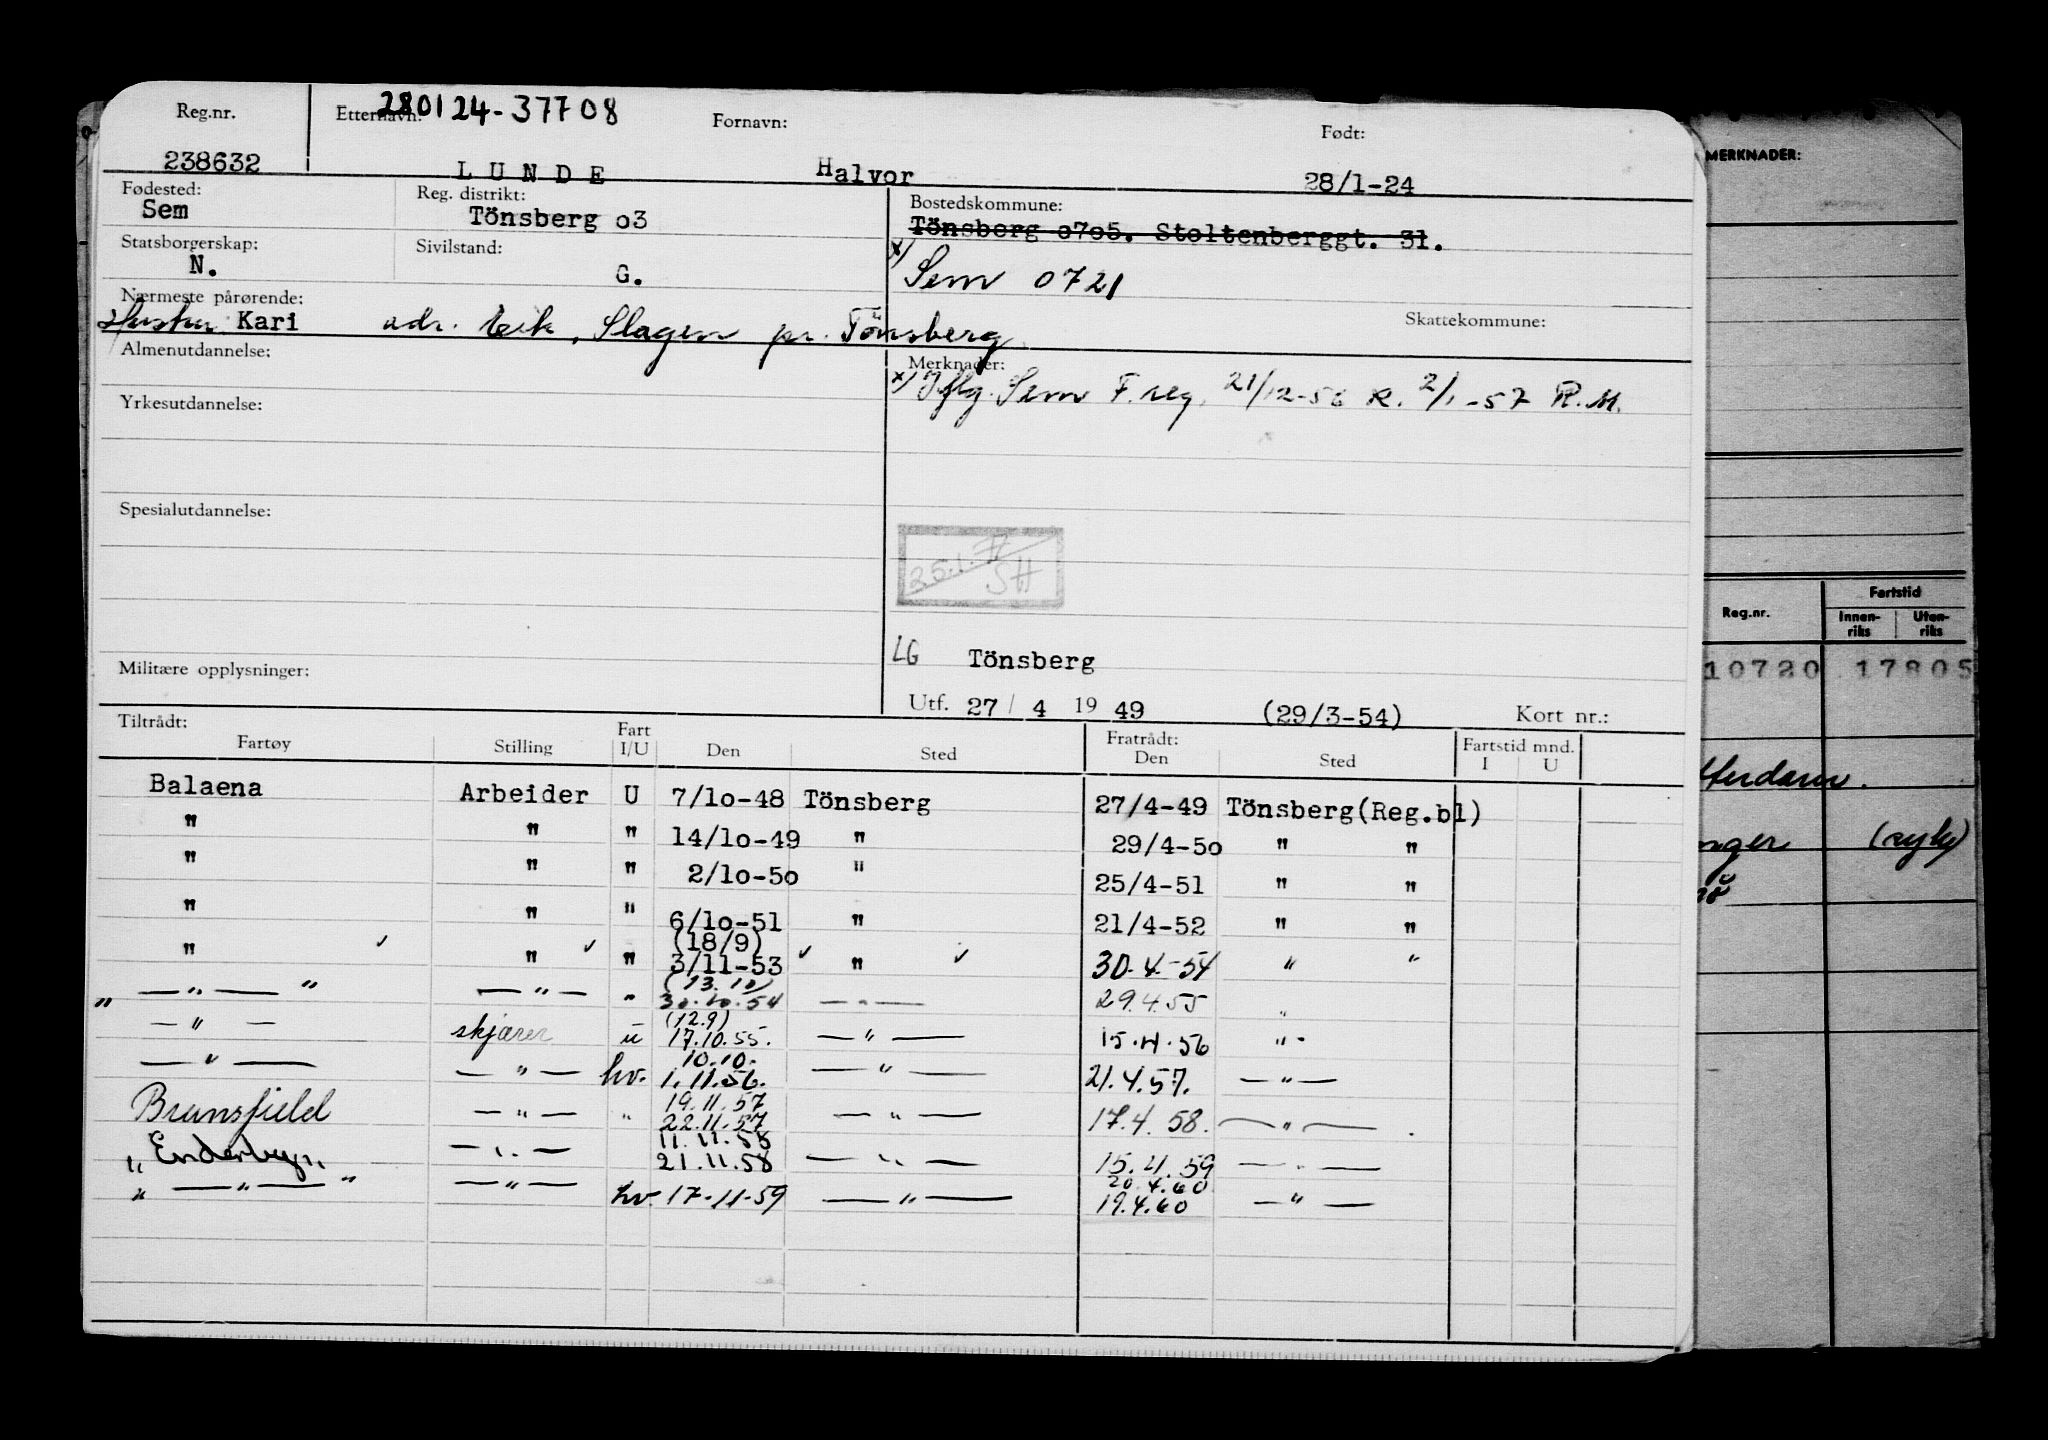 Reg.nr. Etternavn: 280124-37708 Fornavn: Født:
238632 LUNDE Halvor 28/1-24
Fødested: Reg. distrikt: Bostedskommune:
Sem Tönsberg o3 Tönsberg o7o5. Stoltenberggt. 31.
Statsborgerskap: Sivilstand:
N. G. x) Sem 0721
Nærmeste pårørende: Skattekommune:
Hustru Kari adr. Eik, Slagen pr. Tönsberg.
Almenutdannelse: Merknader:
x) Iflg. Sem F.reg. 21/12-56 R. 2/1-57 R.M.
Yrkesutdannelse:
Spesialutdannelse:
25.1.77
SH
LG Tönsberg
Militære opplysninger:
Utf. 27 / 4 19 49 (29/3-54) Kort nr.:
Tiltrådt: Fart Fratrådt: Fartstid mnd.
Fartøy Stilling I/U Den Sted Den Sted I U
Balaena Arbeider U 7/1o-48 Tönsberg 27/4-49 Tönsberg(Reg.bl)
" " " 14/1o-49 " 29/4-5o " "
" " " 2/1o-5o " 25/4-51 " "
" " " 6/1o-51 " 21/4-52 " "
(18/9)
" ✓ " ✓ " 3/11-53 ✓ " ✓ 30.4.-54 " "
(13.10)
" — " — " — " — " 30.10.54 — " — 29.4.55 "
(12.9)
— " — skjærer u 17.10.55. — " — 15.4.56 " -
10.10.
— " — — " — hv. 1.11.56. — " — 21.4.57. — " —
19.11.57
Brunsfield — " — " 22.11.57 — " — 17.4.58. — " — .
11.11.58
"Enderby" — " — 21.11.58 — " — 15.4.59 — " —
20.4.60
" — " — " — " — hv. 17-11-59 — " — 19.4.60 — " —
MERKNADER:
Reg.nr. Fartstid
Innen-riks Uten-riks
10720 17805